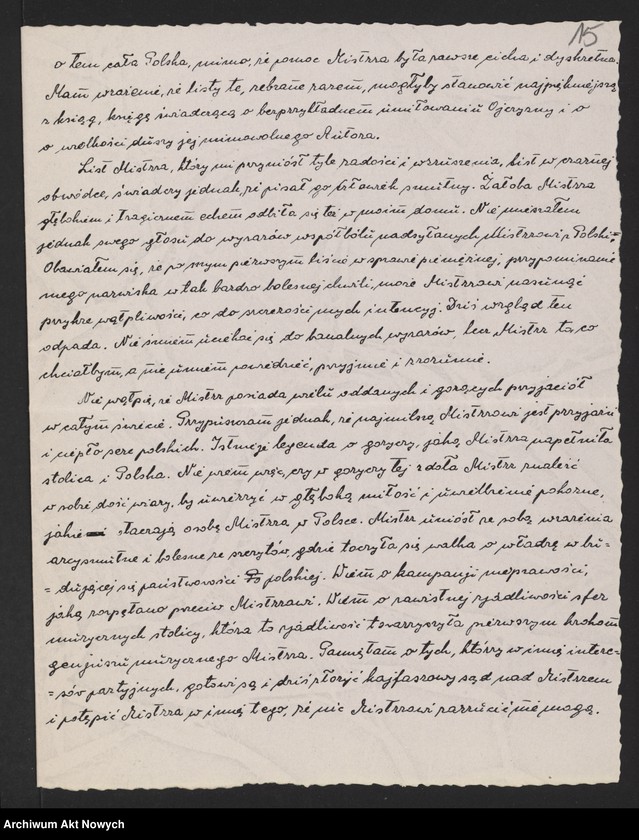 15
o tem cała Polska, mimo, że pomoc Mistrza była zawsze cicha i dyskretna.
Mam wrażenie, że listy te, zebrane razem, mogłyby stanowić najpiękniejszą
z ksiąg, księgę świadczącą o bezprzykładnem umiłowaniu Ojczyzny i o
o wielkości duszy jej mimowolnego Autora.
List Mistrza, który mi przyniósł tyle radości i wzruszenia, list w czarnej
obwódce, świadczy jednak, że pisał go człowiek smutny. Żałoba Mistrza
głębokiem i tragicznem echem odbiła się też w moim domu. Nie mieszałem
jednak swego głosu do wyrazów współbólu nadsyłanych Mistrzowi z Polski.
Obawiałem się, że po mym pierwszym liście w sprawie pieniężnej, przypomnienie
mego nazwiska w tak bardzo bolesnej chwili, może Mistrzowi nasunąć
przykre wątpliwości, co do szczerości mych intencyj. Dziś wzgląd ten
odpada. Nie śmiem uciekać się do banalnych wyrazów, lecz Mistrz to, co
chciałbym, a nie umiem powiedzieć, przyjmie i zrozumie.
Nie wątpię, że Mistrz posiada wielu oddanych i gorących przyjaciół
w całym świecie. Przypuszczam jednak, że najmilszą Mistrzowi jest przyjaźń
i ciepło serc polskich. Istnieje legenda o goryczy, jaką Mistrza napełniła
stolica i Polska. Nie wiem więc, czy w goryczy tej zdoła Mistrz znaleźć
w sobie dość wiary, by uwierzyć w głęboką miłość i uwielbienie pokorne,
jakie otaczają osobę Mistrza w Polsce. Mistrz uniósł ze sobą wrażenia
arcysmutne i bolesne ze szczytów, gdzie toczyła się walka o władzę w bu-
=dującej się państwowości polskiej. Wiem o kampanji nieprawości,
jaką rozpętano przeciw Mistrzowi. Wiem o zawistnej zjadliwości sfer
muzycznych stolicy, która to zjadliwość towarzyszyła pierwszym krokom
genjuszu muzycznego Mistrza. Pamiętam o tych, którzy w imię intere=
=sów partyjnych, gotowi są i dziś złożyć kajfaszowy sąd nad Mistrzem
i potępić Mistrza w imię tego, że nic Mistrzowi zarzucić nie mogą.
Archiwum Akt Nowych